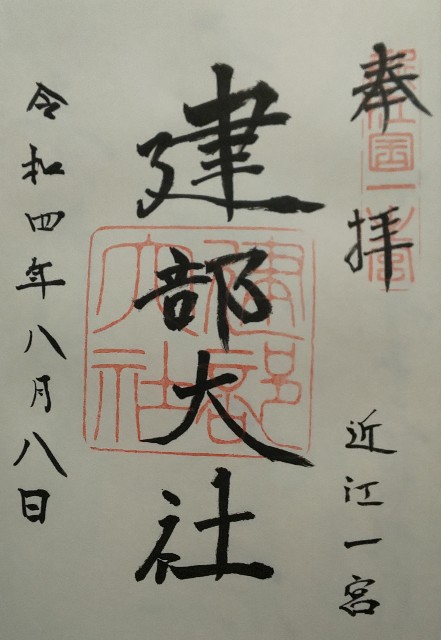 奉拝
近江一宮
建部大社
令和四年八月八日
建部大社